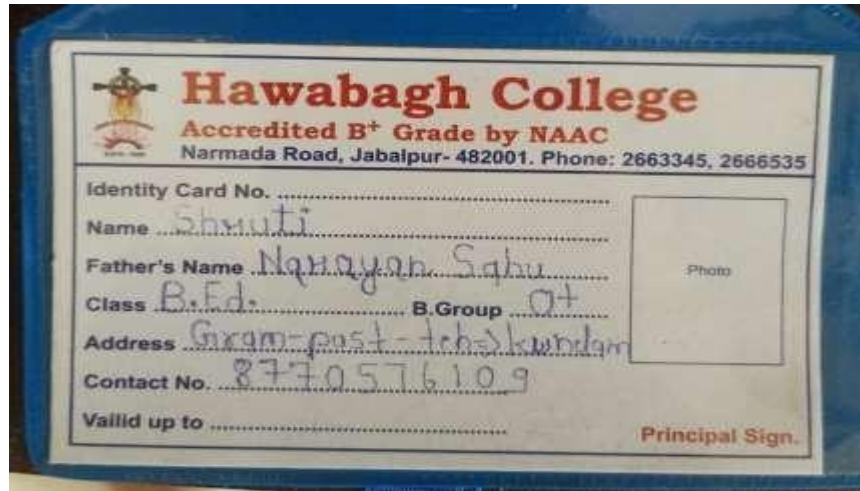 Hawabagh College
Accredited B+ Grade by NAAC
Narmada Road, Jabalpur- 482001. Phone: 2663345, 2666535
Identity Card No. ............................................
Name ...Shruti............................................
Father's Name .Narayan Sahu............
Class .B.Ed............................. B.Group ...O+......
Photo
Address .Gram-post-teh⇒kundam
Contact No. ..8770576109............
Vailid up to ............................................
Principal Sign.